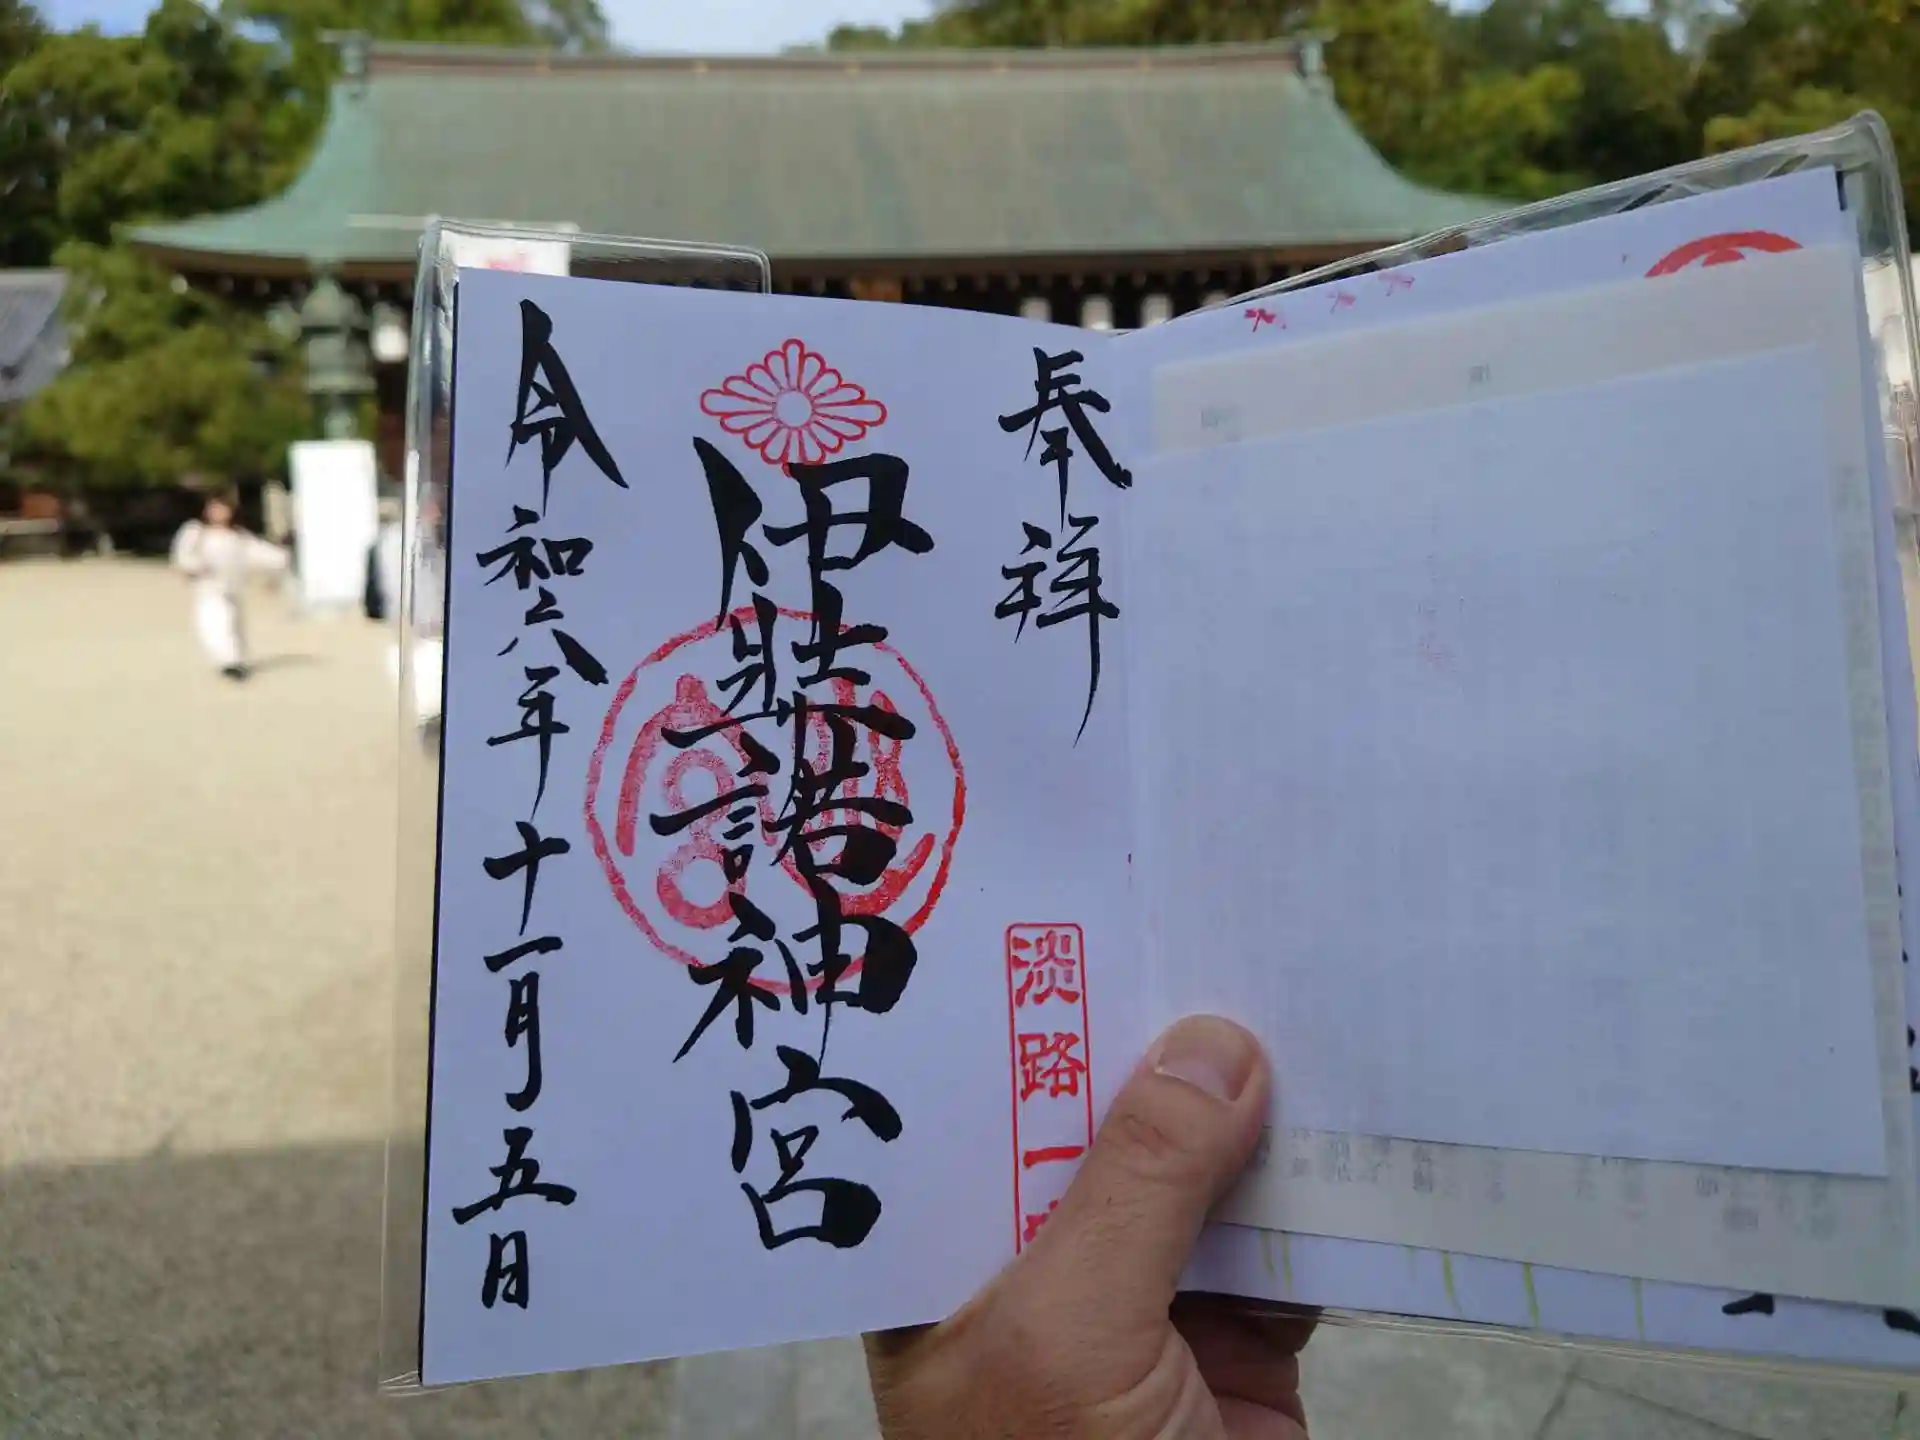 奉拝
淡路一
伊弉諾神宮
令和六年十一月五日